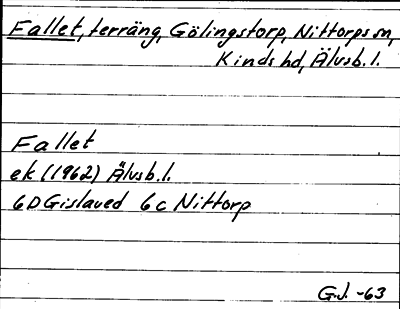 Fallet, terräng, Gölingstorp, Nittorps sn,
Kinds hd, Älvsb. l.
Fallet
ek (1962) Älvsb. l.
6D Gislaved 6c Nittorp
G.J. -63